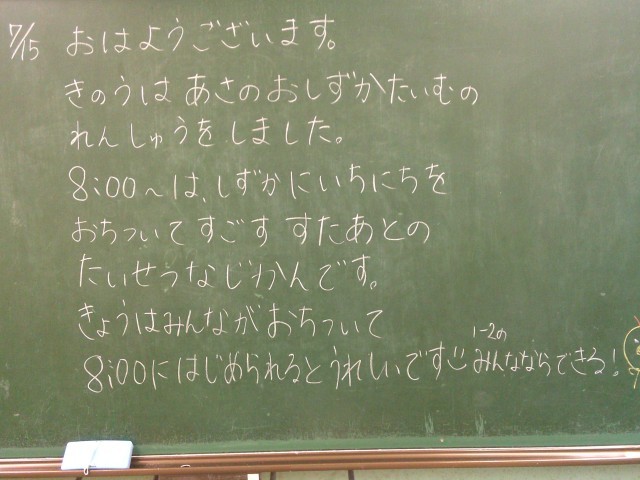 7/15 おはようございます。
きのうは あさの おしずかたいむの
れんしゅうを しました。
8:00〜は、しずかにいちにちを
おちついて すごす すたあとの
たいせつな じかんです。
きょうはみんなが おちついて
8:00にはじめられると うれしいです
1-2の
みんなならできる!